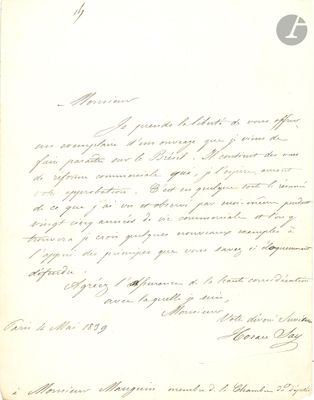 Monsieur
Je prends la liberté de vous offrir
un exemplaire d'un ouvrage que je viens de
faire paraître sur le Brésil. Il contient des vues
de réforme commerciale qui, je l'espère, auront
votre approbation. C'est en quelque sorte le résumé
de ce que j'ai vu et observé par moi-même pendant
vingt cinq années de vie commerciale et l'on y
trouvera je crois quelques nouveaux exemples à
l'appui des principes que vous savez si éloquemment
défendre.
Agréez l'assurance de la haute considération
avec laquelle je suis,
Monsieur
Votre dévoué Serviteur
Horace Say
Paris 4 Mai 1839
à Monsieur Mauguin membre de la Chambre des députés